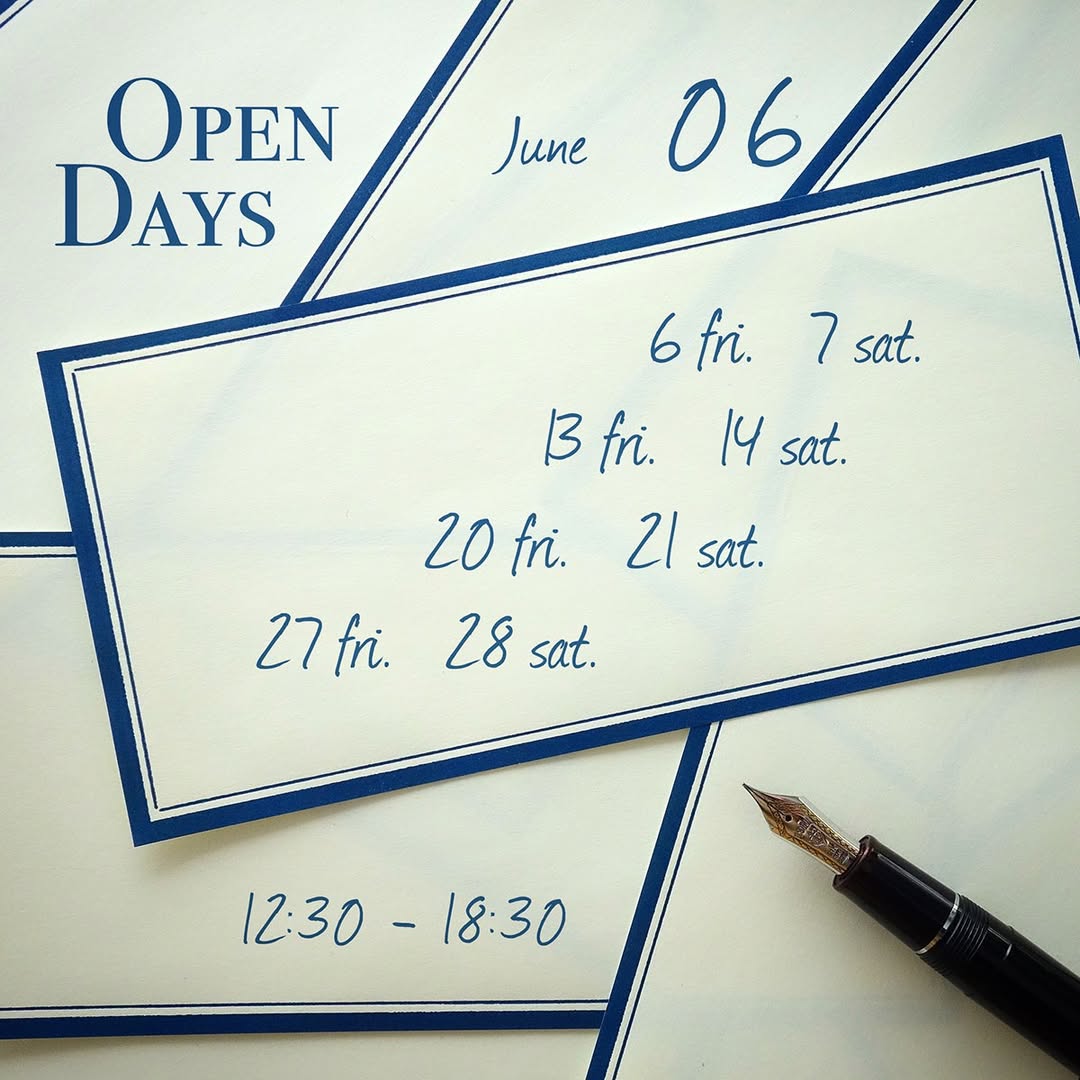 OPEN
DAYS
June 06
6 fri. 7 sat.
13 fri. 14 sat.
20 fri. 21 sat.
27 fri. 28 sat.
12:30 - 18:30